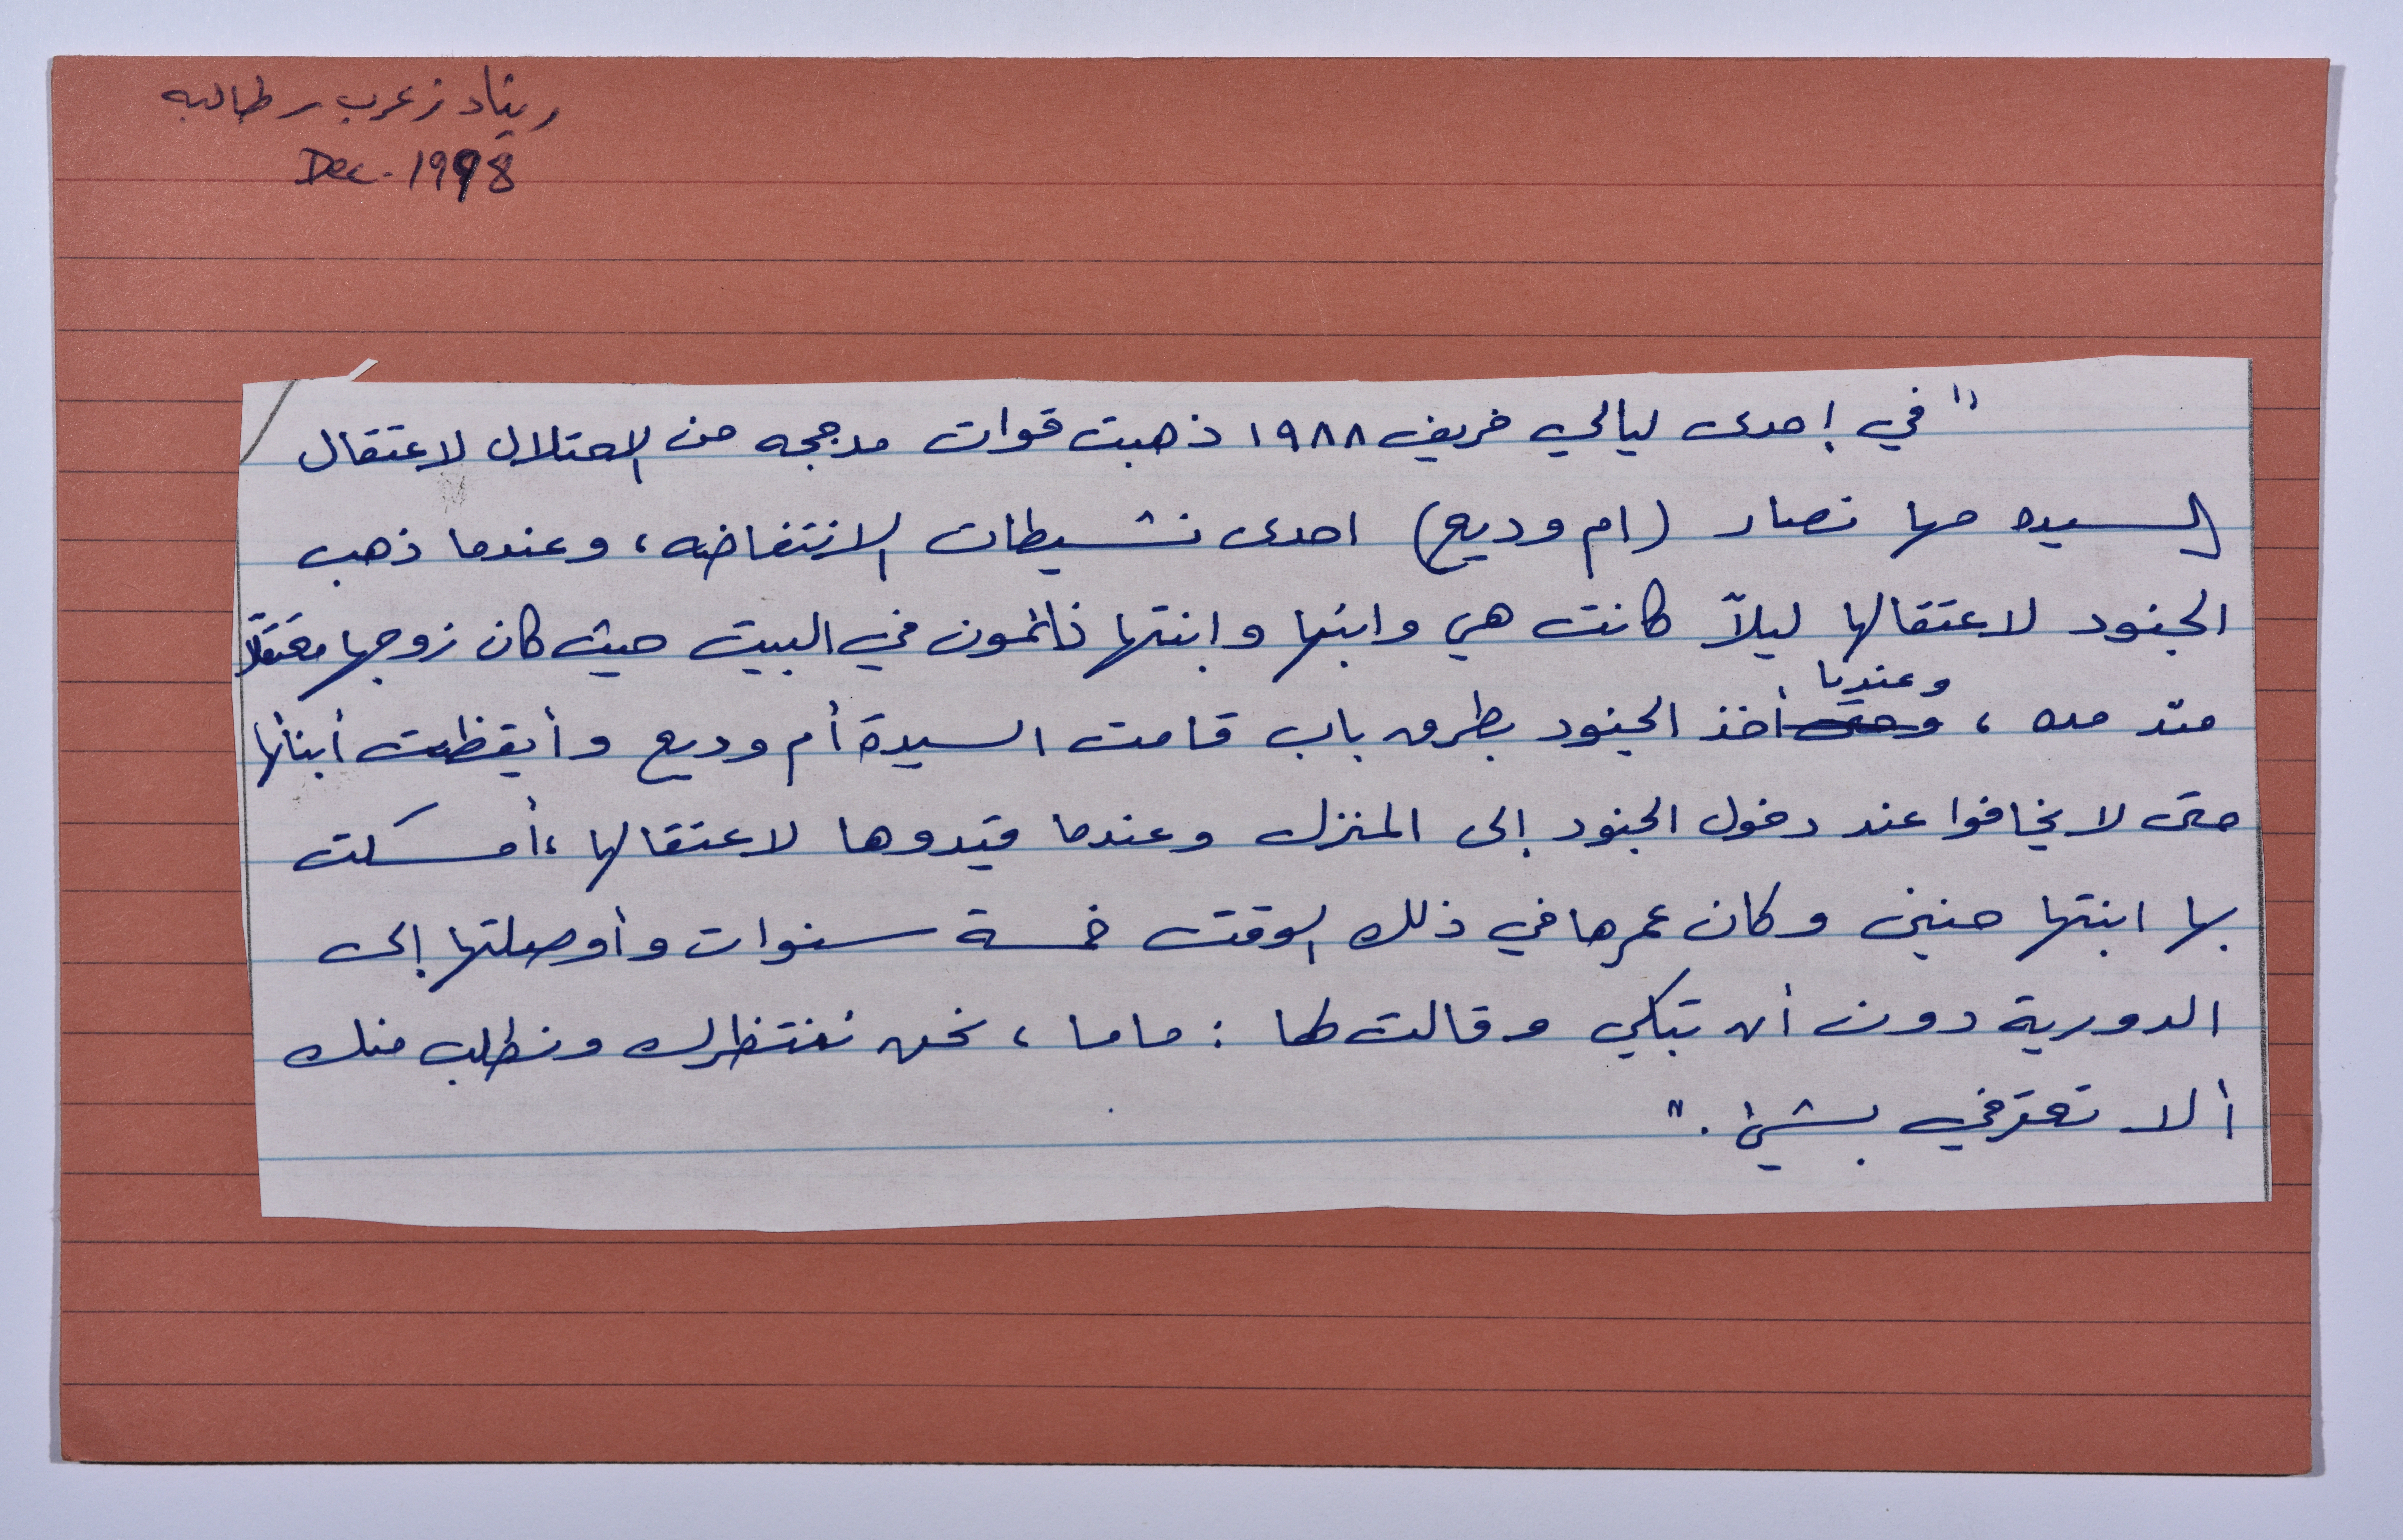 ريناد زعرب رطالبه
Dec. 1998
"في إحدى ليالي خريف ١٩٨٨ ذهبت قوات مدججه من الاحتلال لاعتقال
السيده مها نصار (ام وديع) احدى نشيطات الانتفاضه، وعندما ذهب
الجنود لاعتقالها ليلاً كانت هي وابنها وابنتها نائمون في البيت حيث كان زوجها معتقلاً
وعندما
منذ مده، وحتى أخذ الجنود بطرق باب قامت السيدة أم وديع وأيقظت أبنائها
حتى لا يخافوا عند دخول الجنود إلى المنزل وعندما قيّدوها لاعتقالها، أمسكت
بها ابنتها حنين وكان عمرها في ذلك الوقت خمسة سنوات وأوصلتها إلى
الدورية دون أن تبكي وقالت لها : ماما، نحن ننتظرك ونطلب منك
ألا تعترفي بشيئ."